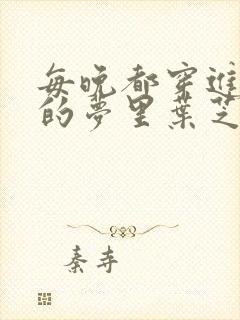 每晚都穿进
的梦里叶芝
秦寺